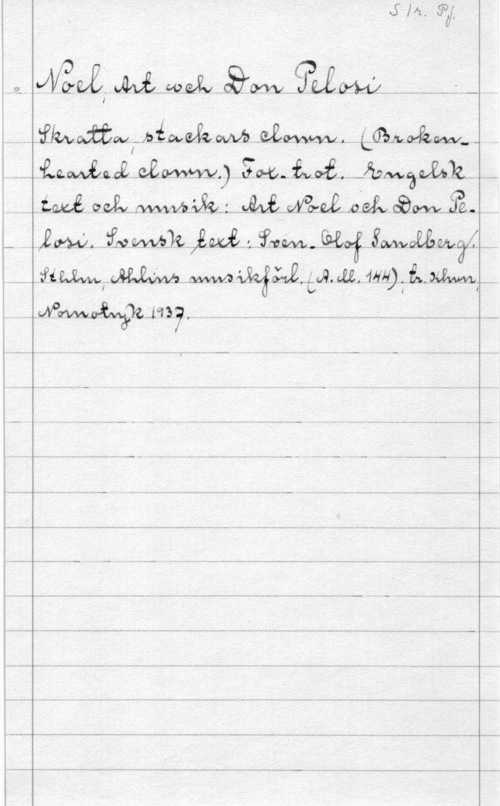 S /r. Pf.
Noel, Art och Don Pelosi
Skratta, stackars clown. (Broken-
hearted clown.) Fox-trot. Engelsk
text och musik: Art Noel och Don Pe-
losi. Svensk text: Sven-Olof Sandberg.
Sthlm, Ahlins musikförl. (A. M. 144), tr. Khvn,
Nornotryk 1937.